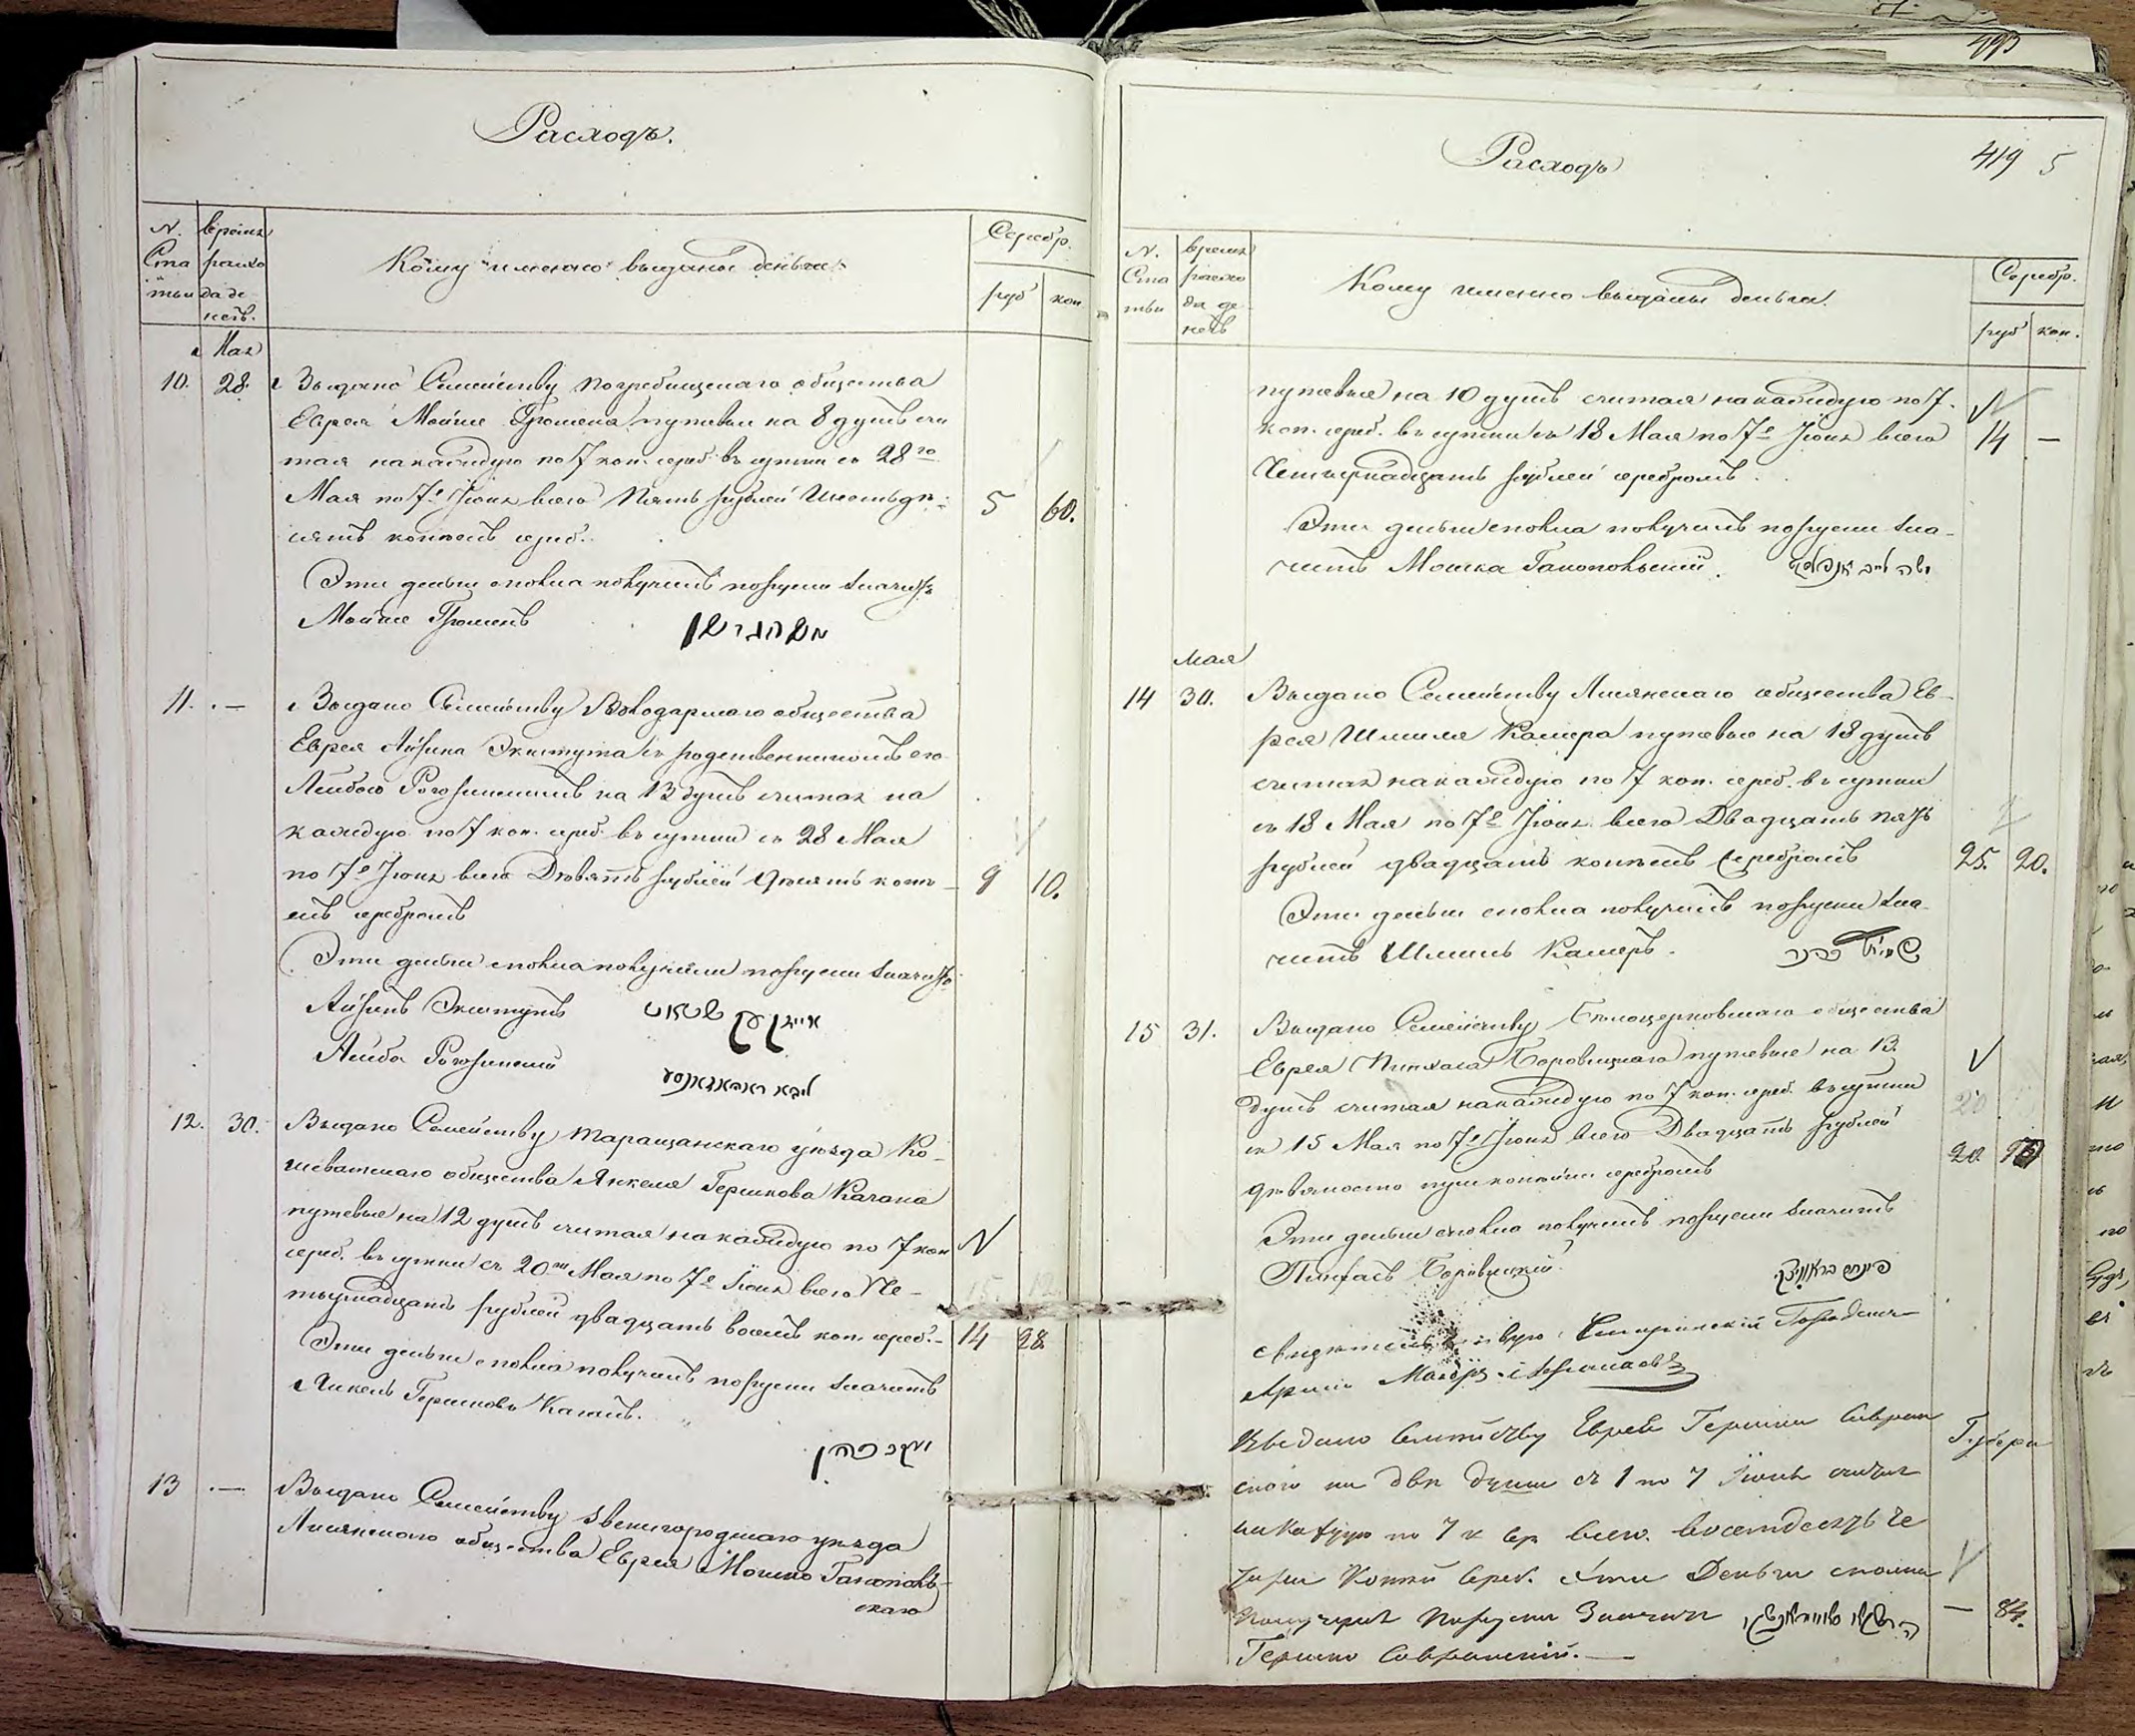 Расходъ.
N. Статьи
время расхода денегъ.
Кому именно выданы деньги
Серебр.
руб
коп
Мая
10. 28. Выдано Семейству Погребищскаго общества
Еврея Мойше Грошена путевыя на 8 душъ счи
тая накаждую по 7 коп. сереб. въ сутки съ 28го
Мая по 7е Іюня всего Пять рублей Шестьде-
сятъ копѣекъ сереб. 5 60.
Эти деньги сполна получилъ порусски значитъ
Мойше Грошенъ
משה גרשן
11. — Выдано Семейству Володарскаго общества
Еврея Айзика Экштута съ родственникомъ его
Лейбою Рогозинскимъ на 13 душъ считая на
каждую по 7 коп. сереб. въ сутки съ 28 Мая
по 7е Іюня всего Девять рублей Десять копѣ- 9 10.
екъ серебромъ
Эти деньги сполна получили порусски значитъ
Айзикъ Экштутъ
אייזיק עקשטוט
Лейба Рогозинский
ליבא ראגאזינסקי
12. 30. Выдано Семейству Таращанскаго уѣзда Ко-
шеватскаго общества Янкеля Гершкова Кагана
путевые на 12 душъ считая накаждую по 7 коп
сереб. въ сутки съ 20го Мая по 7е Іюня всего Че-
тырнадцать рублей двадцать восемь коп. сереб. - 14 28.
Эти деньги сполна получилъ порусски значитъ
Янкель Гершковъ Каганъ.
יענקל כהן
13 — Выдано Семейству Звенигородскаго уѣзда
Лисянскаго общества Еврея Мошко Гапоновь-
скаго
493
419 5
Расходъ
N. Статьи
время расхода денегъ
Кому именно выданы деньги.
Серебр.
руб
коп.
путевые на 10 душъ считая накаждую по 7.
коп. сереб. въ сутки съ 18 Мая по 7е Іюня всего 14 —
Четырнадцать рублей серебромъ.
Эти деньги сполна получилъ порусски зна-
читъ Мошка Гапоновьский.
мая
14 30. Выдано Семейству Лисянскаго общества Ев-
рея Шмиля Камера путевые на 18 душъ
считая накаждую по 7 коп. сереб. въ сутки
съ 18 Мая по 7е Іюня всего Двадцать пять
рублей двадцать копѣекъ Серебромъ 25. 20.
Эти деньги сполна получилъ порусски зна-
читъ Шмиль Камеръ.
15 31. Выдано Семейству Бѣлоцерковскаго общества
Еврея Пинхаса Боровицкаго путевые на 13.
душъ считая накаждую по 7 коп. сереб. въ сутки
съ 15 Мая по 7е Іюня всего Двадцать рублей
девяносто три копѣйки серебромъ 20. 93
Эти деньги сполна получилъ порусски значитъ
Пинхасъ Боровицкий.
Свидѣтельствую
Маіоръ
Выдано Семейству Еврея Гершки Савран
скаго на двѣ души съ 1 по 7 Іюня считая
накаждую по 7 к сер всего. восемдесятъ че
тыри копѣй сереб. Эти Деньги сполна
получилъ порусски Значитъ — 84.
Гершко Савранский.